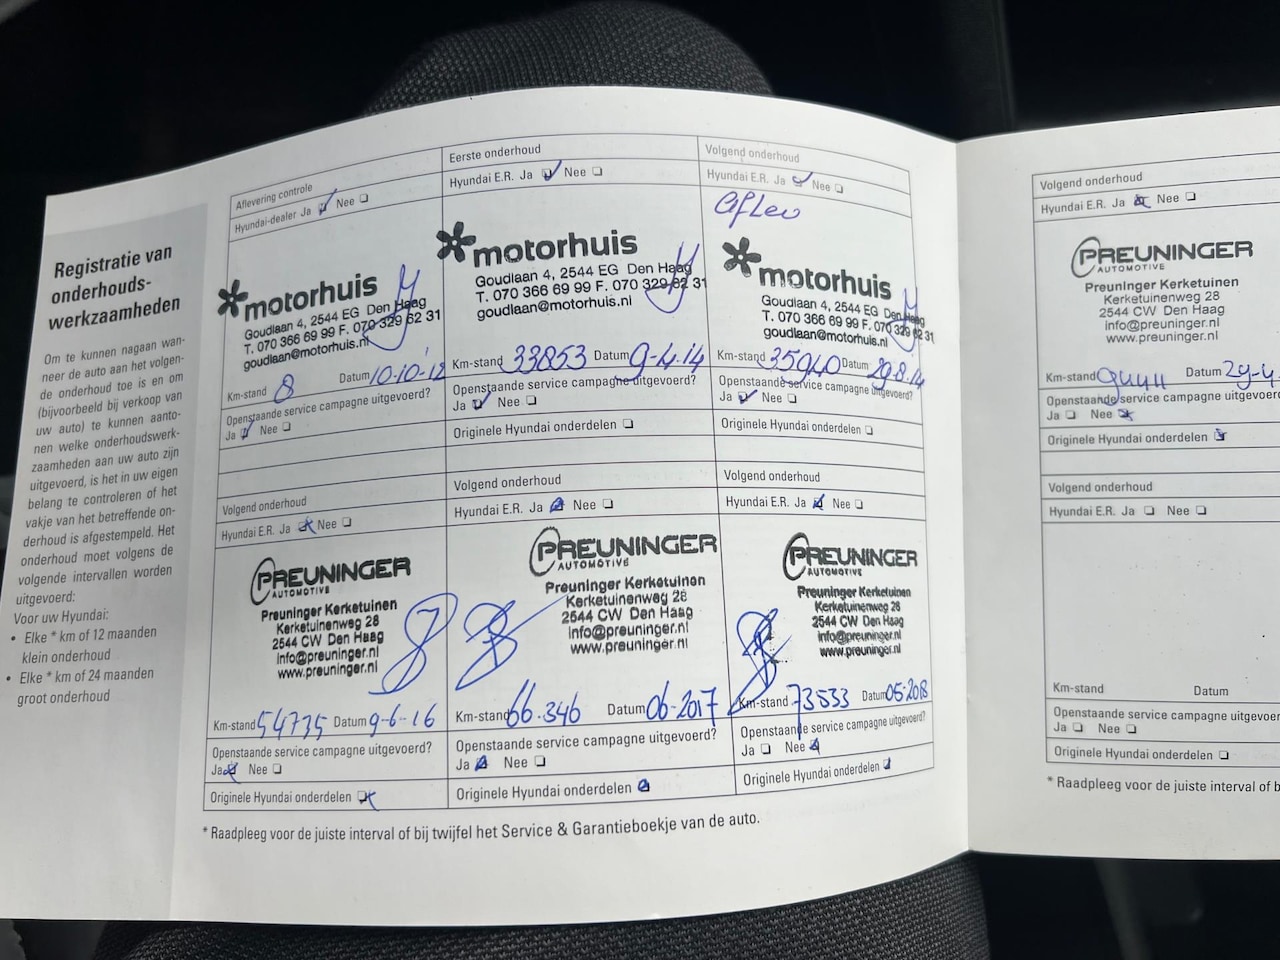 Registratie van
onderhouds-
werkzaamheden
Om te kunnen nagaan wan-
neer de auto aan het volgen-
de onderhoud toe is en om
(bijvoorbeeld bij verkoop van
uw auto) te kunnen aanto-
nen welke onderhoudswerk-
zaamheden aan uw auto zijn
uitgevoerd, is het in uw eigen
belang te controleren of het
vakje van het betreffende on-
derhoud is afgestempeld. Het
onderhoud moet volgens de
volgende intervallen worden
uitgevoerd:
Voor uw Hyundai:
• Elke * km of 12 maanden
klein onderhoud
• Elke * km of 24 maanden
groot onderhoud
Aflevering controle
Hyundai-dealer Ja Nee
motorhuis
Goudlaan 4, 2544 EG Den Haag
T. 070 366 69 99 F. 070 329 62 31
goudlaan@motorhuis.nl
Km-stand 8 Datum 10-10-12
Openstaande service campagne uitgevoerd?
Ja Nee
Eerste onderhoud
Hyundai E.R. Ja Nee
motorhuis
Goudlaan 4, 2544 EG Den Haag
T. 070 366 69 99 F. 070 329 62 31
goudlaan@motorhuis.nl
Km-stand 33853 Datum 9-4-14
Openstaande service campagne uitgevoerd?
Ja Nee
Originele Hyundai onderdelen
Volgend onderhoud
Hyundai E.R. Ja Nee
aflev
motorhuis
Goudlaan 4, 2544 EG Den Haag
T. 070 366 69 99 F. 070 329 62 31
goudlaan@motorhuis.nl
Km-stand 35940 Datum 29-8-14
Openstaande service campagne uitgevoerd?
Ja Nee
Originele Hyundai onderdelen
Volgend onderhoud
Hyundai E.R. Ja Nee
PREUNINGER
AUTOMOTIVE
Preuninger Kerketuinen
Kerketuinenweg 28
2544 CW Den Haag
info@preuninger.nl
www.preuninger.nl
Km-stand 54735 Datum 9-6-16
Openstaande service campagne uitgevoerd?
Ja Nee
Originele Hyundai onderdelen
Volgend onderhoud
Hyundai E.R. Ja Nee
PREUNINGER
AUTOMOTIVE
Preuninger Kerketuinen
Kerketuinenweg 28
2544 CW Den Haag
info@preuninger.nl
www.preuninger.nl
Km-stand 66.346 Datum 06-2017
Openstaande service campagne uitgevoerd?
Ja Nee
Originele Hyundai onderdelen
Volgend onderhoud
Hyundai E.R. Ja Nee
PREUNINGER
AUTOMOTIVE
Preuninger Kerketuinen
Kerketuinenweg 28
2544 CW Den Haag
info@preuninger.nl
www.preuninger.nl
Km-stand 73533 Datum 05-2018
Openstaande service campagne uitgevoerd?
Ja Nee
Originele Hyundai onderdelen
* Raadpleeg voor de juiste interval of bij twijfel het Service & Garantieboekje van de auto.
Volgend onderhoud
Hyundai E.R. Ja Nee
PREUNINGER
AUTOMOTIVE
Preuninger Kerketuinen
Kerketuinenweg 28
2544 CW Den Haag
info@preuninger.nl
www.preuninger.nl
Km-stand Datum 29-4
Openstaande service campagne uitgevoerd
Ja Nee
Originele Hyundai onderdelen
Volgend onderhoud
Hyundai E.R. Ja Nee
Km-stand Datum
Openstaande service campagne uitgevoerd
Ja Nee
Originele Hyundai onderdelen
* Raadpleeg voor de juiste interval of b